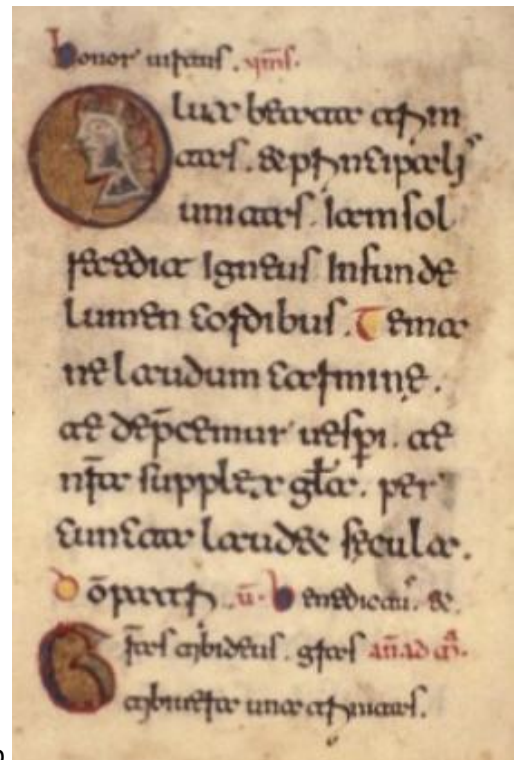 honor uirtus. ymns.
O lux beata trin
itas. et principali
unitas. Iam sol
recedit Igneus Infunde
lumen cordibus. Te ma
ne laudum carmine.
te dep̄cemur uesp̄i. te
nr̄a supplex gl̄a. per
cuncta laudet secula.
D ō patri .v̄. Benedicam
Gr̄as tibi deus. gr̄as an̄ ad m̄.
tibi uera una trinitas.